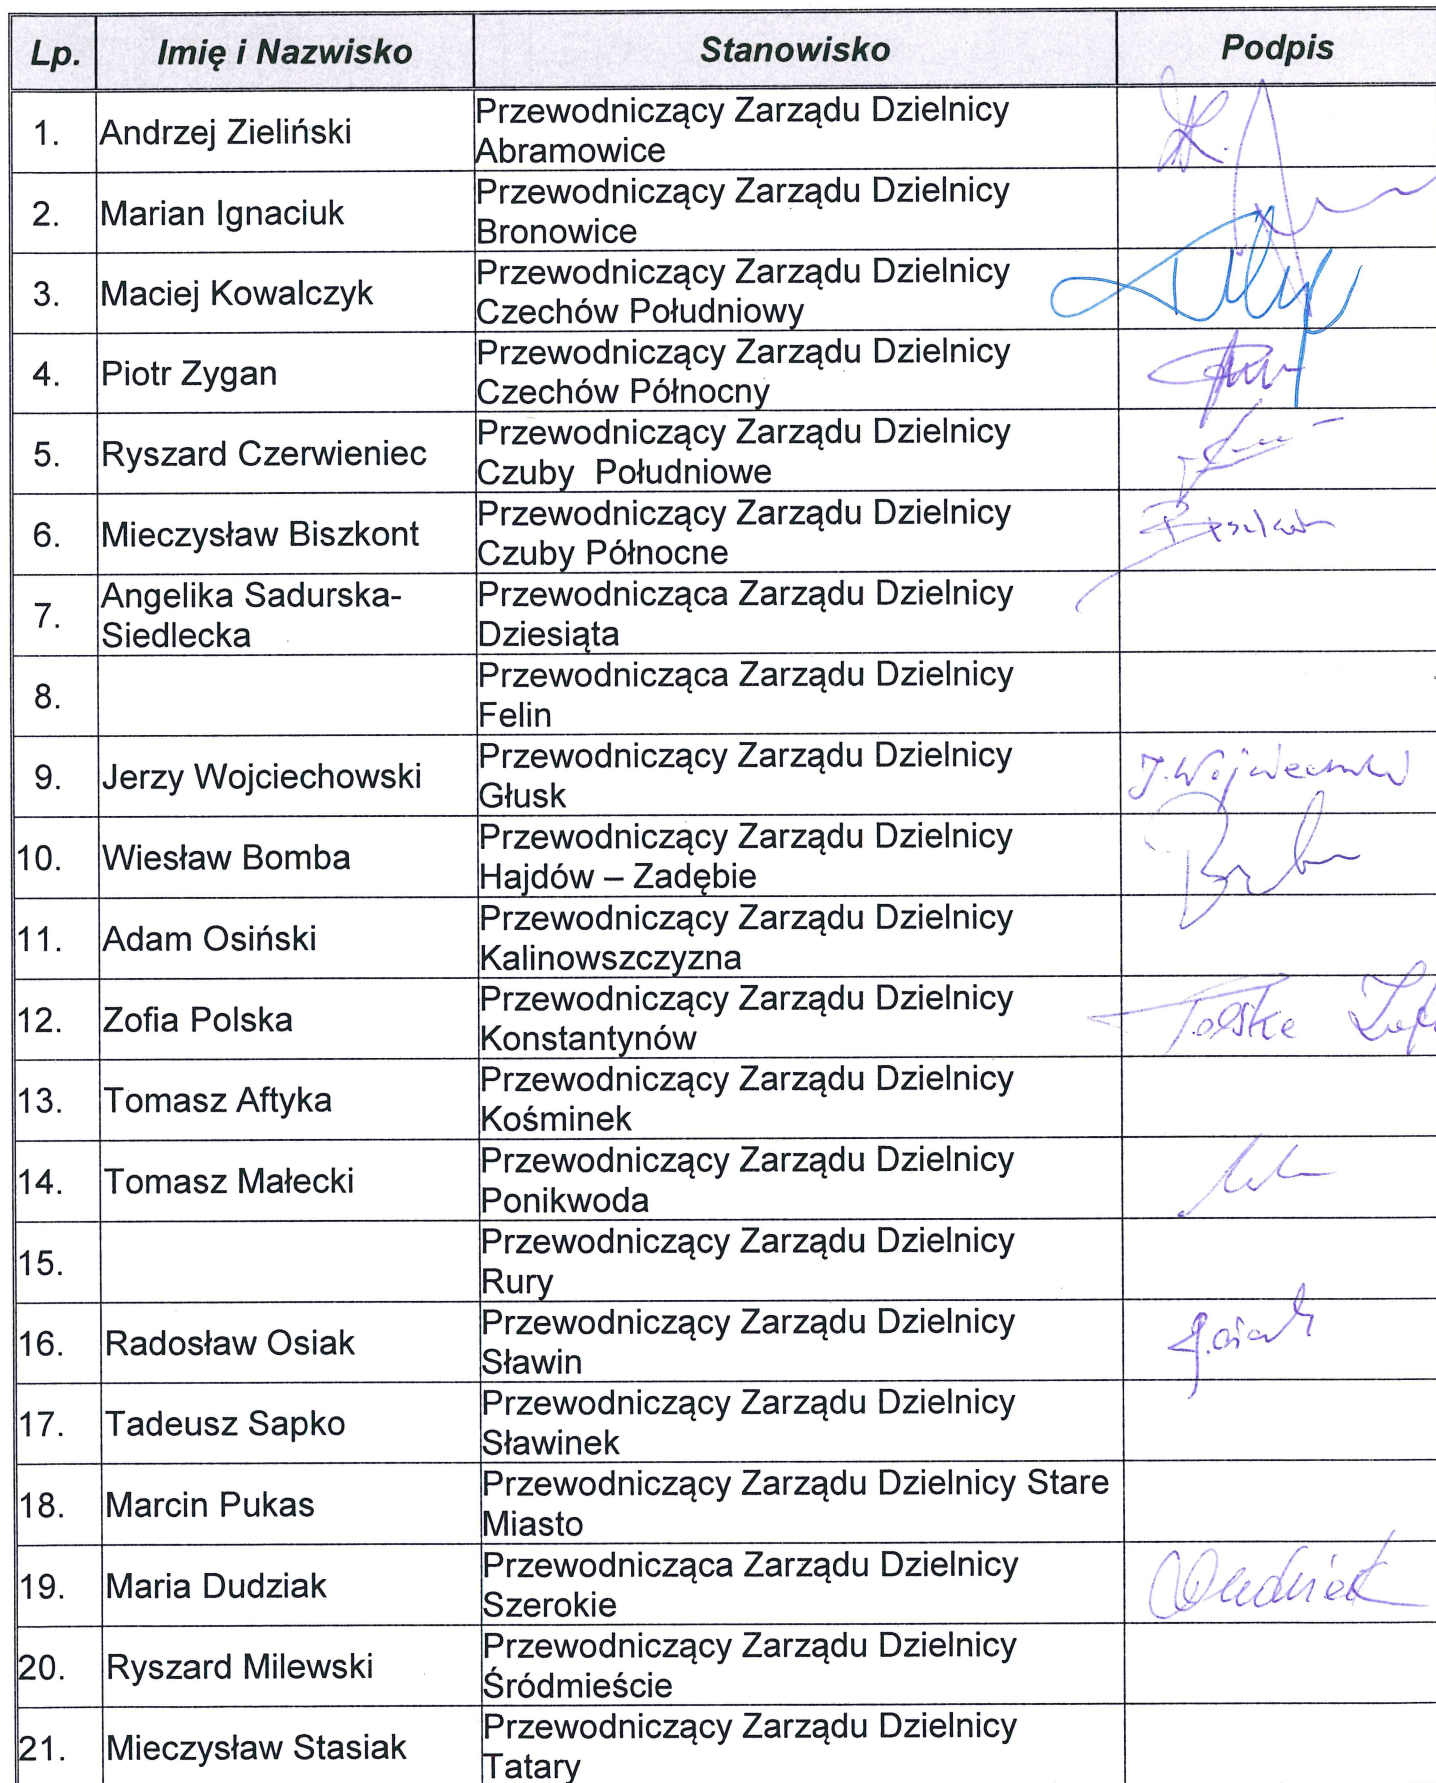 Lp. Imię i Nazwisko Stanowisko Podpis
1. Andrzej Zieliński Przewodniczący Zarządu Dzielnicy
Abramowice
2. Marian Ignaciuk Przewodniczący Zarządu Dzielnicy
Bronowice
3. Maciej Kowalczyk Przewodniczący Zarządu Dzielnicy
Czechów Południowy
4. Piotr Zygan Przewodniczący Zarządu Dzielnicy
Czechów Północny
5. Ryszard Czerwieniec Przewodniczący Zarządu Dzielnicy
Czuby Południowe
6. Mieczysław Biszkont Przewodniczący Zarządu Dzielnicy
Czuby Północne
7. Angelika Sadurska- Przewodnicząca Zarządu Dzielnicy
Siedlecka Dziesiąta
8. Przewodnicząca Zarządu Dzielnicy
Felin
9. Jerzy Wojciechowski Przewodniczący Zarządu Dzielnicy
Głusk
10. Wiesław Bomba Przewodniczący Zarządu Dzielnicy
Hajdów – Zadębie
11. Adam Osiński Przewodniczący Zarządu Dzielnicy
Kalinowszczyzna
12. Zofia Polska Przewodniczący Zarządu Dzielnicy
Konstantynów
13. Tomasz Aftyka Przewodniczący Zarządu Dzielnicy
Kośminek
14. Tomasz Małecki Przewodniczący Zarządu Dzielnicy
Ponikwoda
15. Przewodniczący Zarządu Dzielnicy
Rury
16. Radosław Osiak Przewodniczący Zarządu Dzielnicy
Sławin
17. Tadeusz Sapko Przewodniczący Zarządu Dzielnicy
Sławinek
18. Marcin Pukas Przewodniczący Zarządu Dzielnicy Stare
Miasto
19. Maria Dudziak Przewodnicząca Zarządu Dzielnicy
Szerokie
20. Ryszard Milewski Przewodniczący Zarządu Dzielnicy
Śródmieście
21. Mieczysław Stasiak Przewodniczący Zarządu Dzielnicy
Tatary